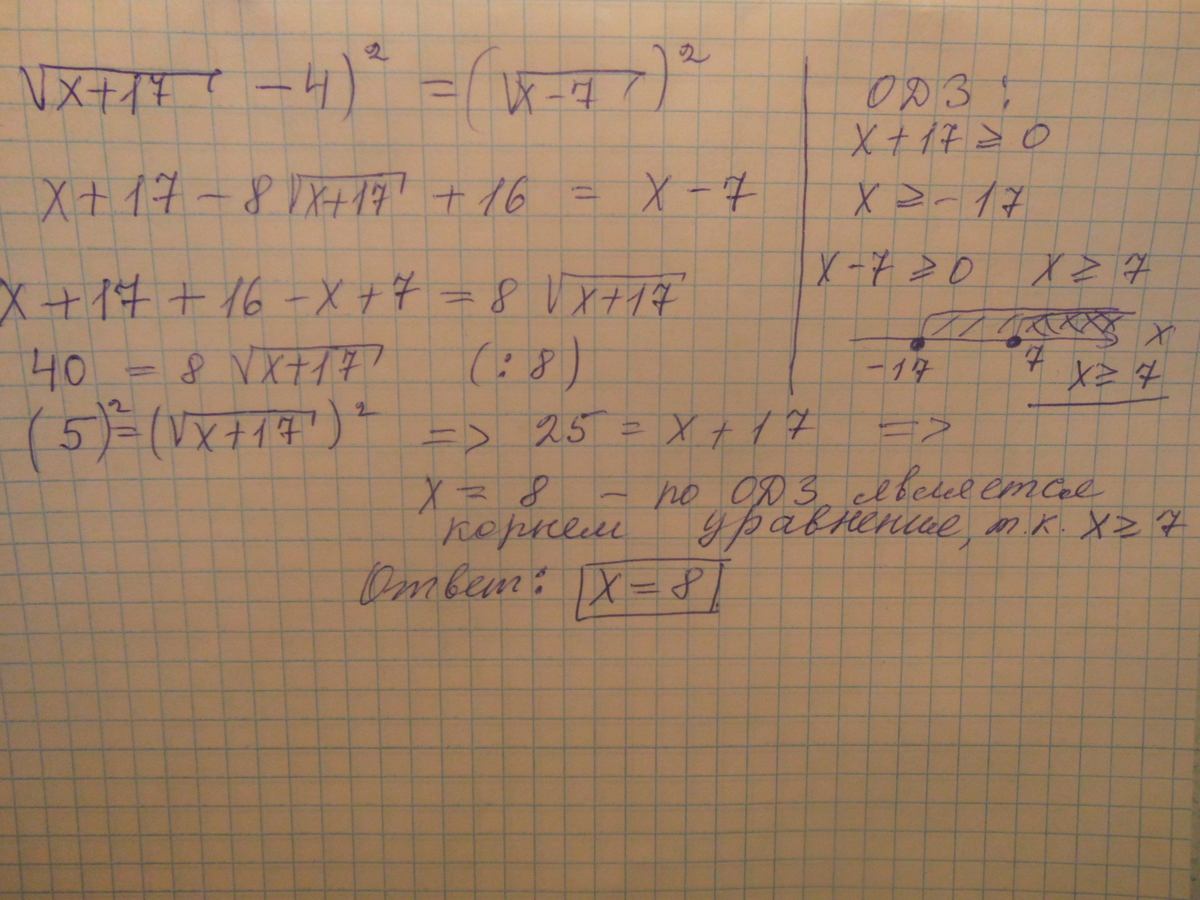 √x+17 - 4)² = (√x-7)²
x + 17 - 8 √x+17 + 16 = x - 7
x + 17 + 16 - x + 7 = 8 √x+17
40 = 8 √x+17 (: 8)
(5)² = (√x+17)² => 25 = x + 17 =>
x = 8 - по ОДЗ является
корнем уравнение, т.к. x ≥ 7
Ответ: x = 8
ОДЗ:
x + 17 ≥ 0
x ≥ -17
x - 7 ≥ 0 x ≥ 7
x
-17 7 x ≥ 7